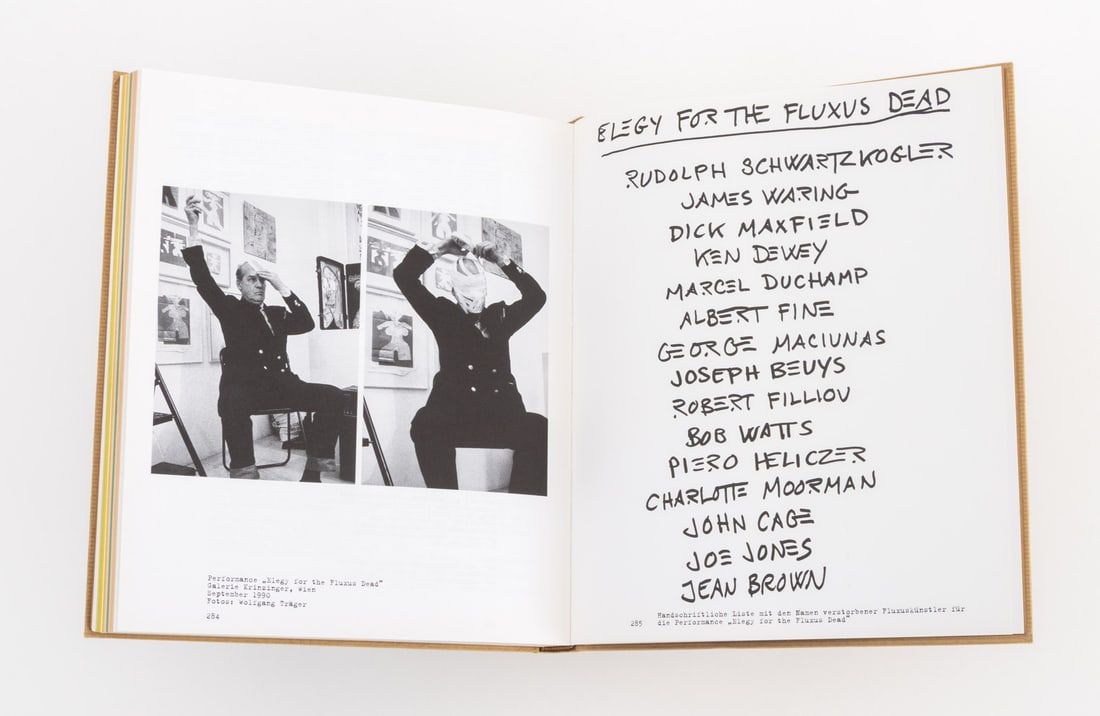 Performance „Elegy for the Fluxus Dead“
Galerie Krinzinger, Wien
September 1990
Fotos: Wolfgang Träger
284
ELEGY FOR THE FLUXUS DEAD
RUDOLPH SCHWARTZKOGLER
JAMES WARING
DICK MAXFIELD
KEN DEWEY
MARCEL DUCHAMP
ALBERT FINE
GEORGE MACIUNAS
JOSEPH BEUYS
ROBERT FILLIOU
BOB WATTS
PIERO HELICZER
CHARLOTTE MOORMAN
JOHN CAGE
JOE JONES
JEAN BROWN
Handschriftliche Liste mit den Namen verstorbener Fluxuskünstler für
285 die Performance „Elegy for the Fluxus Dead“